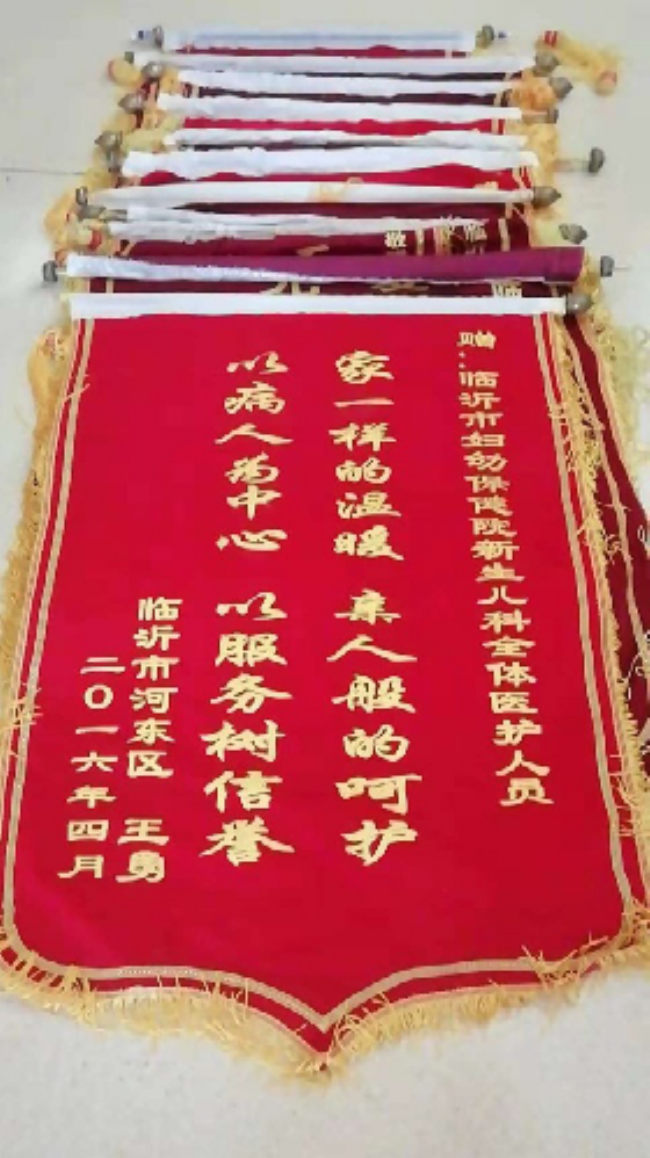 赠：临沂市妇幼保健院新生儿科全体医护人员
家一样的温暖 亲人般的呵护
以病人为中心 以服务树信誉
临沂市河东区 王勇
二〇一六年四月